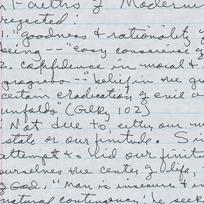 Faiths of Modernis
rejected:
1. "goodness & rationality
being -- "easy conscience of
2. confidence in moral &
progress -- "belief in the gr
certain eradication of evil a
unfolds" (Gilky 102)
Not due to either our
state or our finitude. Sin
attempt to hid our finitu
ourselves the center of life,
God. "Man is insecure & in
natural contingency; he seek